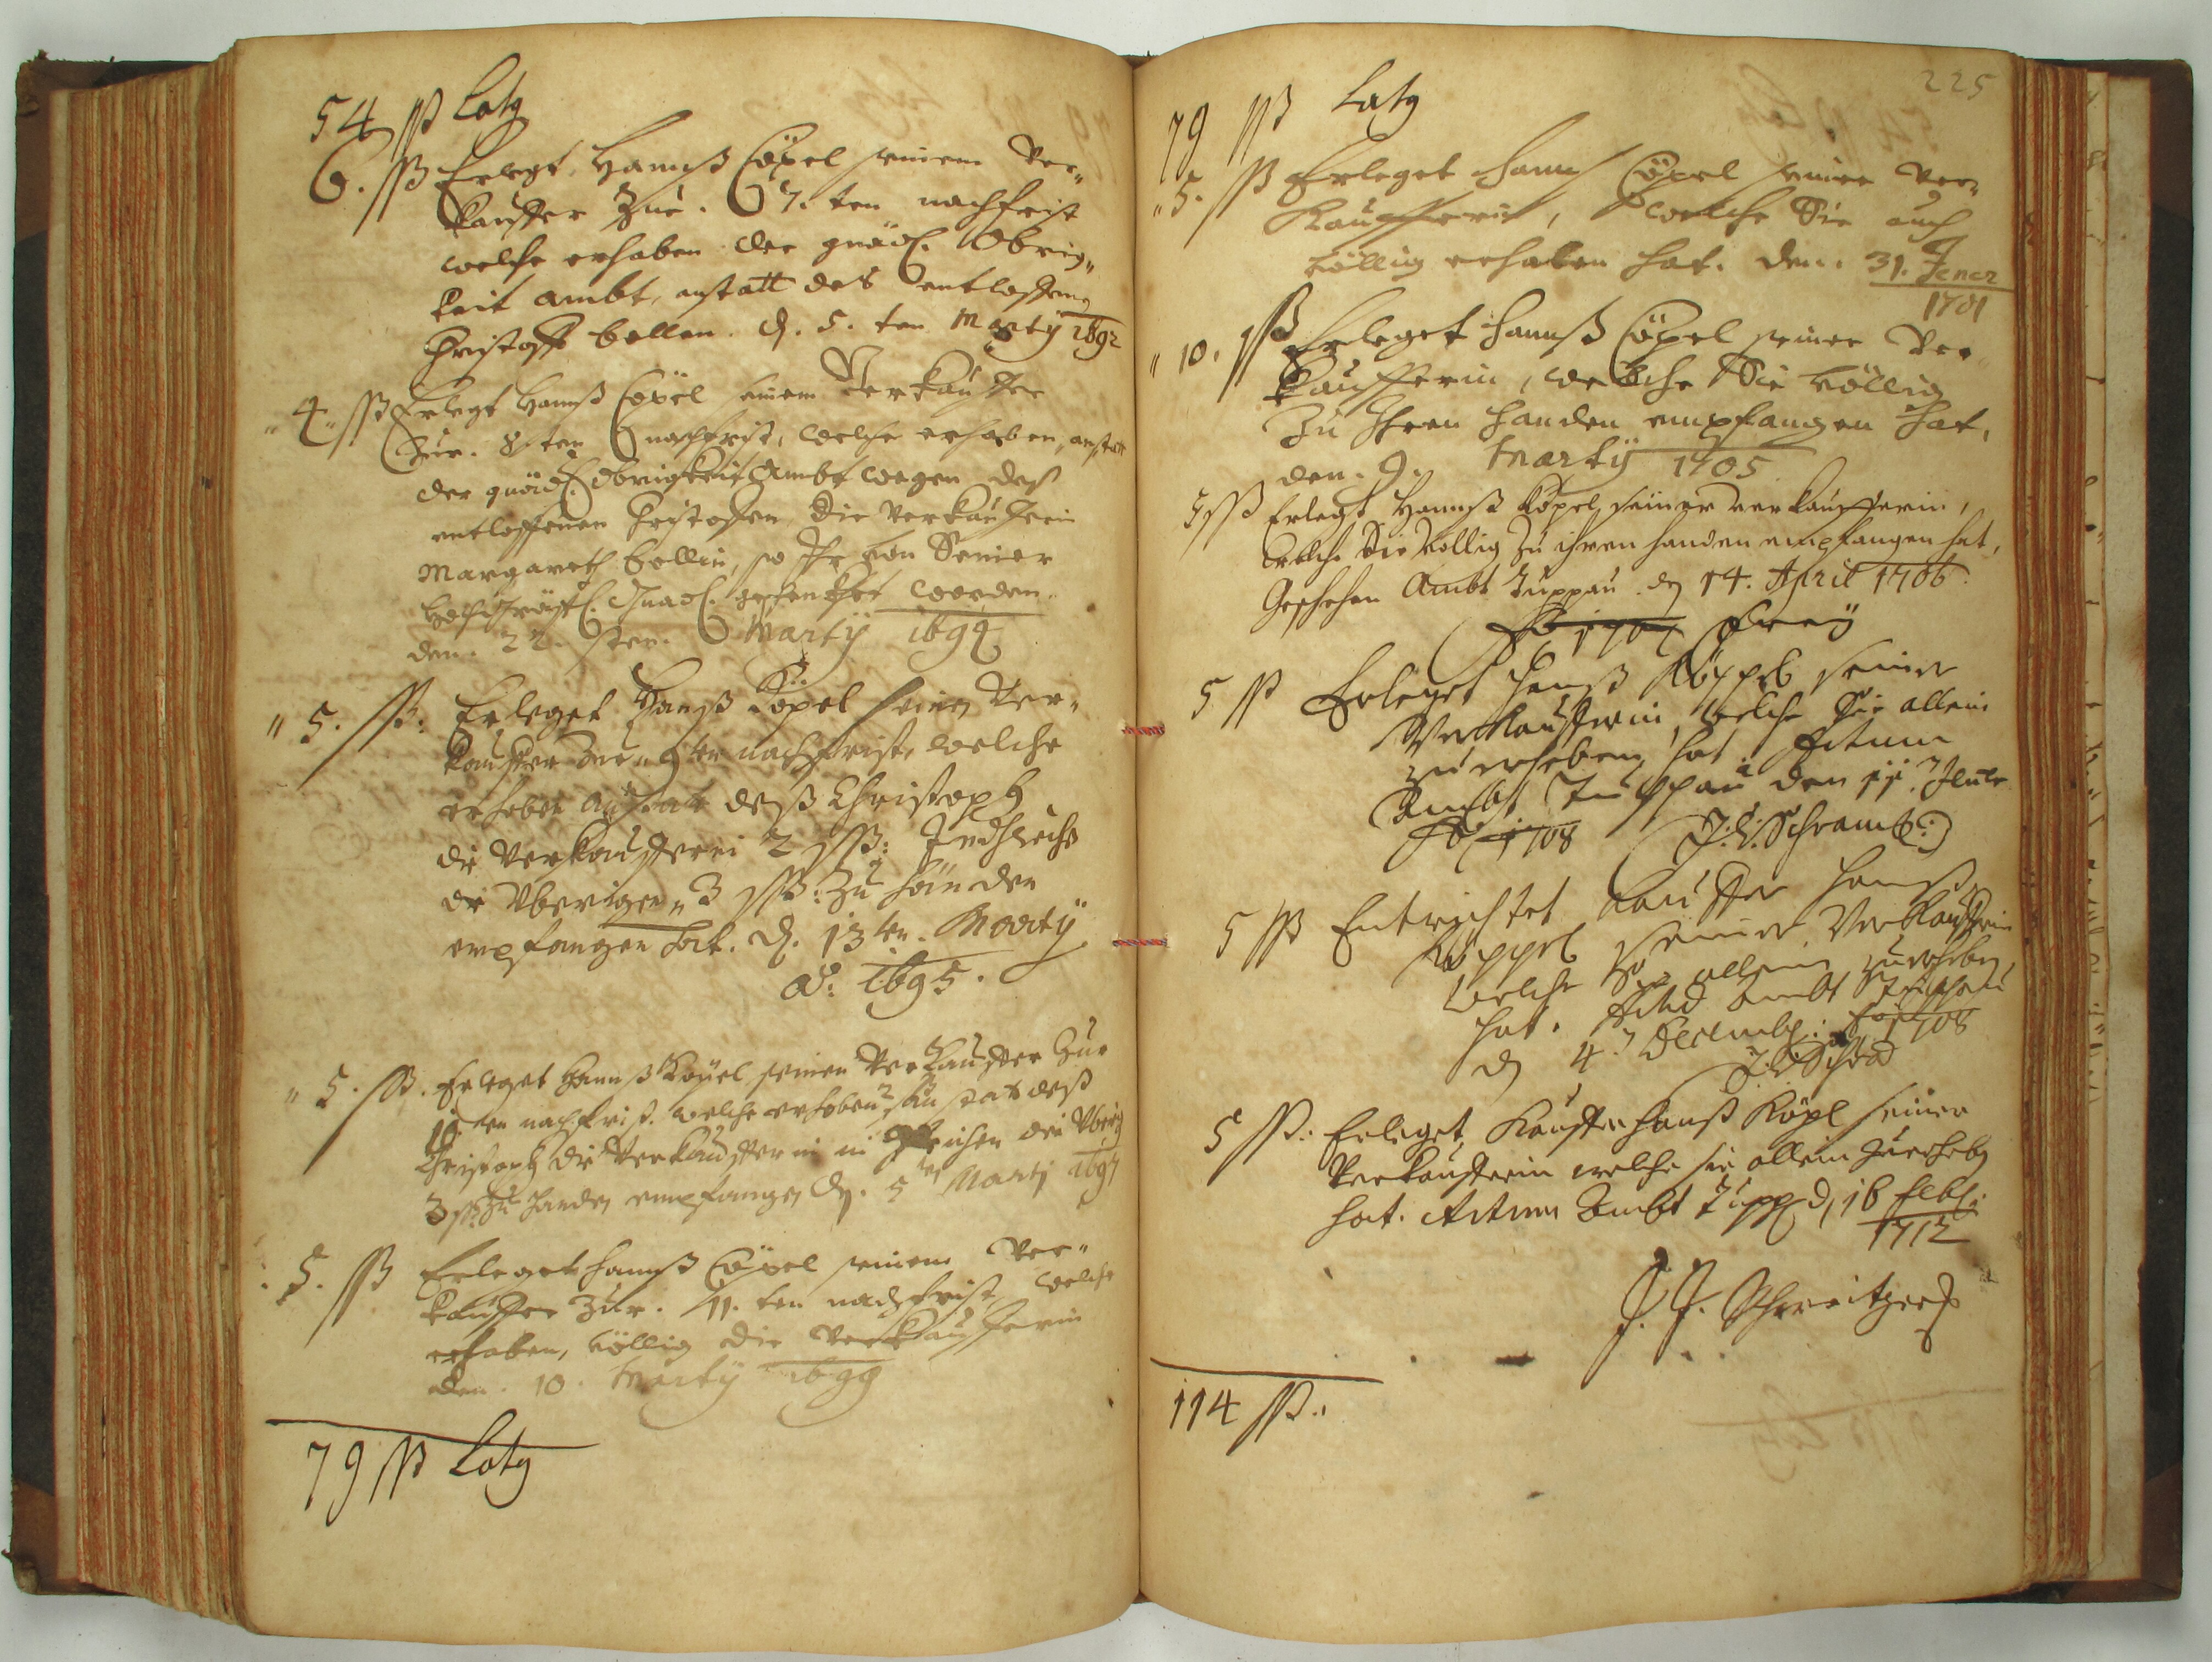 54 ßß Latg
6. ßß Erlegt Hannß Cöpel seinem Ver-
kauffer Zue. 7. ten nachfrist
welche erhaben die gnädl. Obrig-
keit ambt, anstatt des entloffenen
Christoff bellen. d. 5. ten Martÿ 1692
"4" ßß Erlegt Hannß Cöpel seinem Verkauffer
Zur. 8. ten nachfrist, welche erhaben, anstatt
der gnädl. obrigkeit Ambt wegen deß
entloffenen Christoffen, die Verkaufferin
Margareth bellin, so Ihr von Seiner
Hochgräfl. Gnad. geschenkhet worden.
den. 22. sten. Martÿ 1694
" 5. ßß: Erleget Hanß Köpel seinen Ver-
kauffer Zur 9 ten nachfrist, welche
erhoben anstatt deß Christoph
die Verkaufferin 2 ßß:
die Vberigen 3 ßß: Zu händen
empfangen hat. d. 13 ten. Martÿ
Ao: 1695.
" 5. ßß. Erleget Hannß Köpel seinen Verkauffer Zur
10 ten nachfrist. welche erhoben anstat deß
Christoph die Verkaufferin in gleichen die Vberig
3 ßß Zu handen empfangen dn. 5 ten Martj 1697
5. ßß Erleget Hannß Cöpel seinem Ver-
kauffer Zur. 11. ten nachfrist, welche
erhaben, völlig die Verkaufferin
den. 10. Martÿ 1699
79 ßß Latg
225
79 ßß Latg
"5. ßß Erleget Hannß Cöpel seiner Ver-
Kaufferin, welche Sie auch
völlig erhaben hat. den. 31. Jener
1701
" 10. ßß Erleget Hannß Cöpel seiner Ver-
kaufferin, welche Sie völlig
Zu Ihren Handen empfangen hat,
den. 9. Martÿ 1705
5 ßß Erlegt Hannß Köpel seiner verkaufferin,
welche Sie völlig Zu ihren handen empfangen hat,
Geschehen Ambt Tuppau. dn 14. April 1706.
1707
5 ßß Erleget Hanß Köppel seiner
Verkaufferin, welche Sie allein
zu erheben hat. Actum
Ambt Tuppau den 11.
Ao 1708 J: C: Schramb:
5 ßß Entrichtet Kauffer Hanß
Köppel seiner Verkaufferin
welche Sie allein zuerheben
hat. Actum Ambt Tuppau
dn 4. Decembr: Ao 1708
5 ßß: Erleget Kauffer Hanß Köpl seiner
Verkaufferin welche sie allein zuerheben
hat. Actum Ambt Tupp d. 16 Febr:
1712
J. J. Schweitzer
114 ßß.